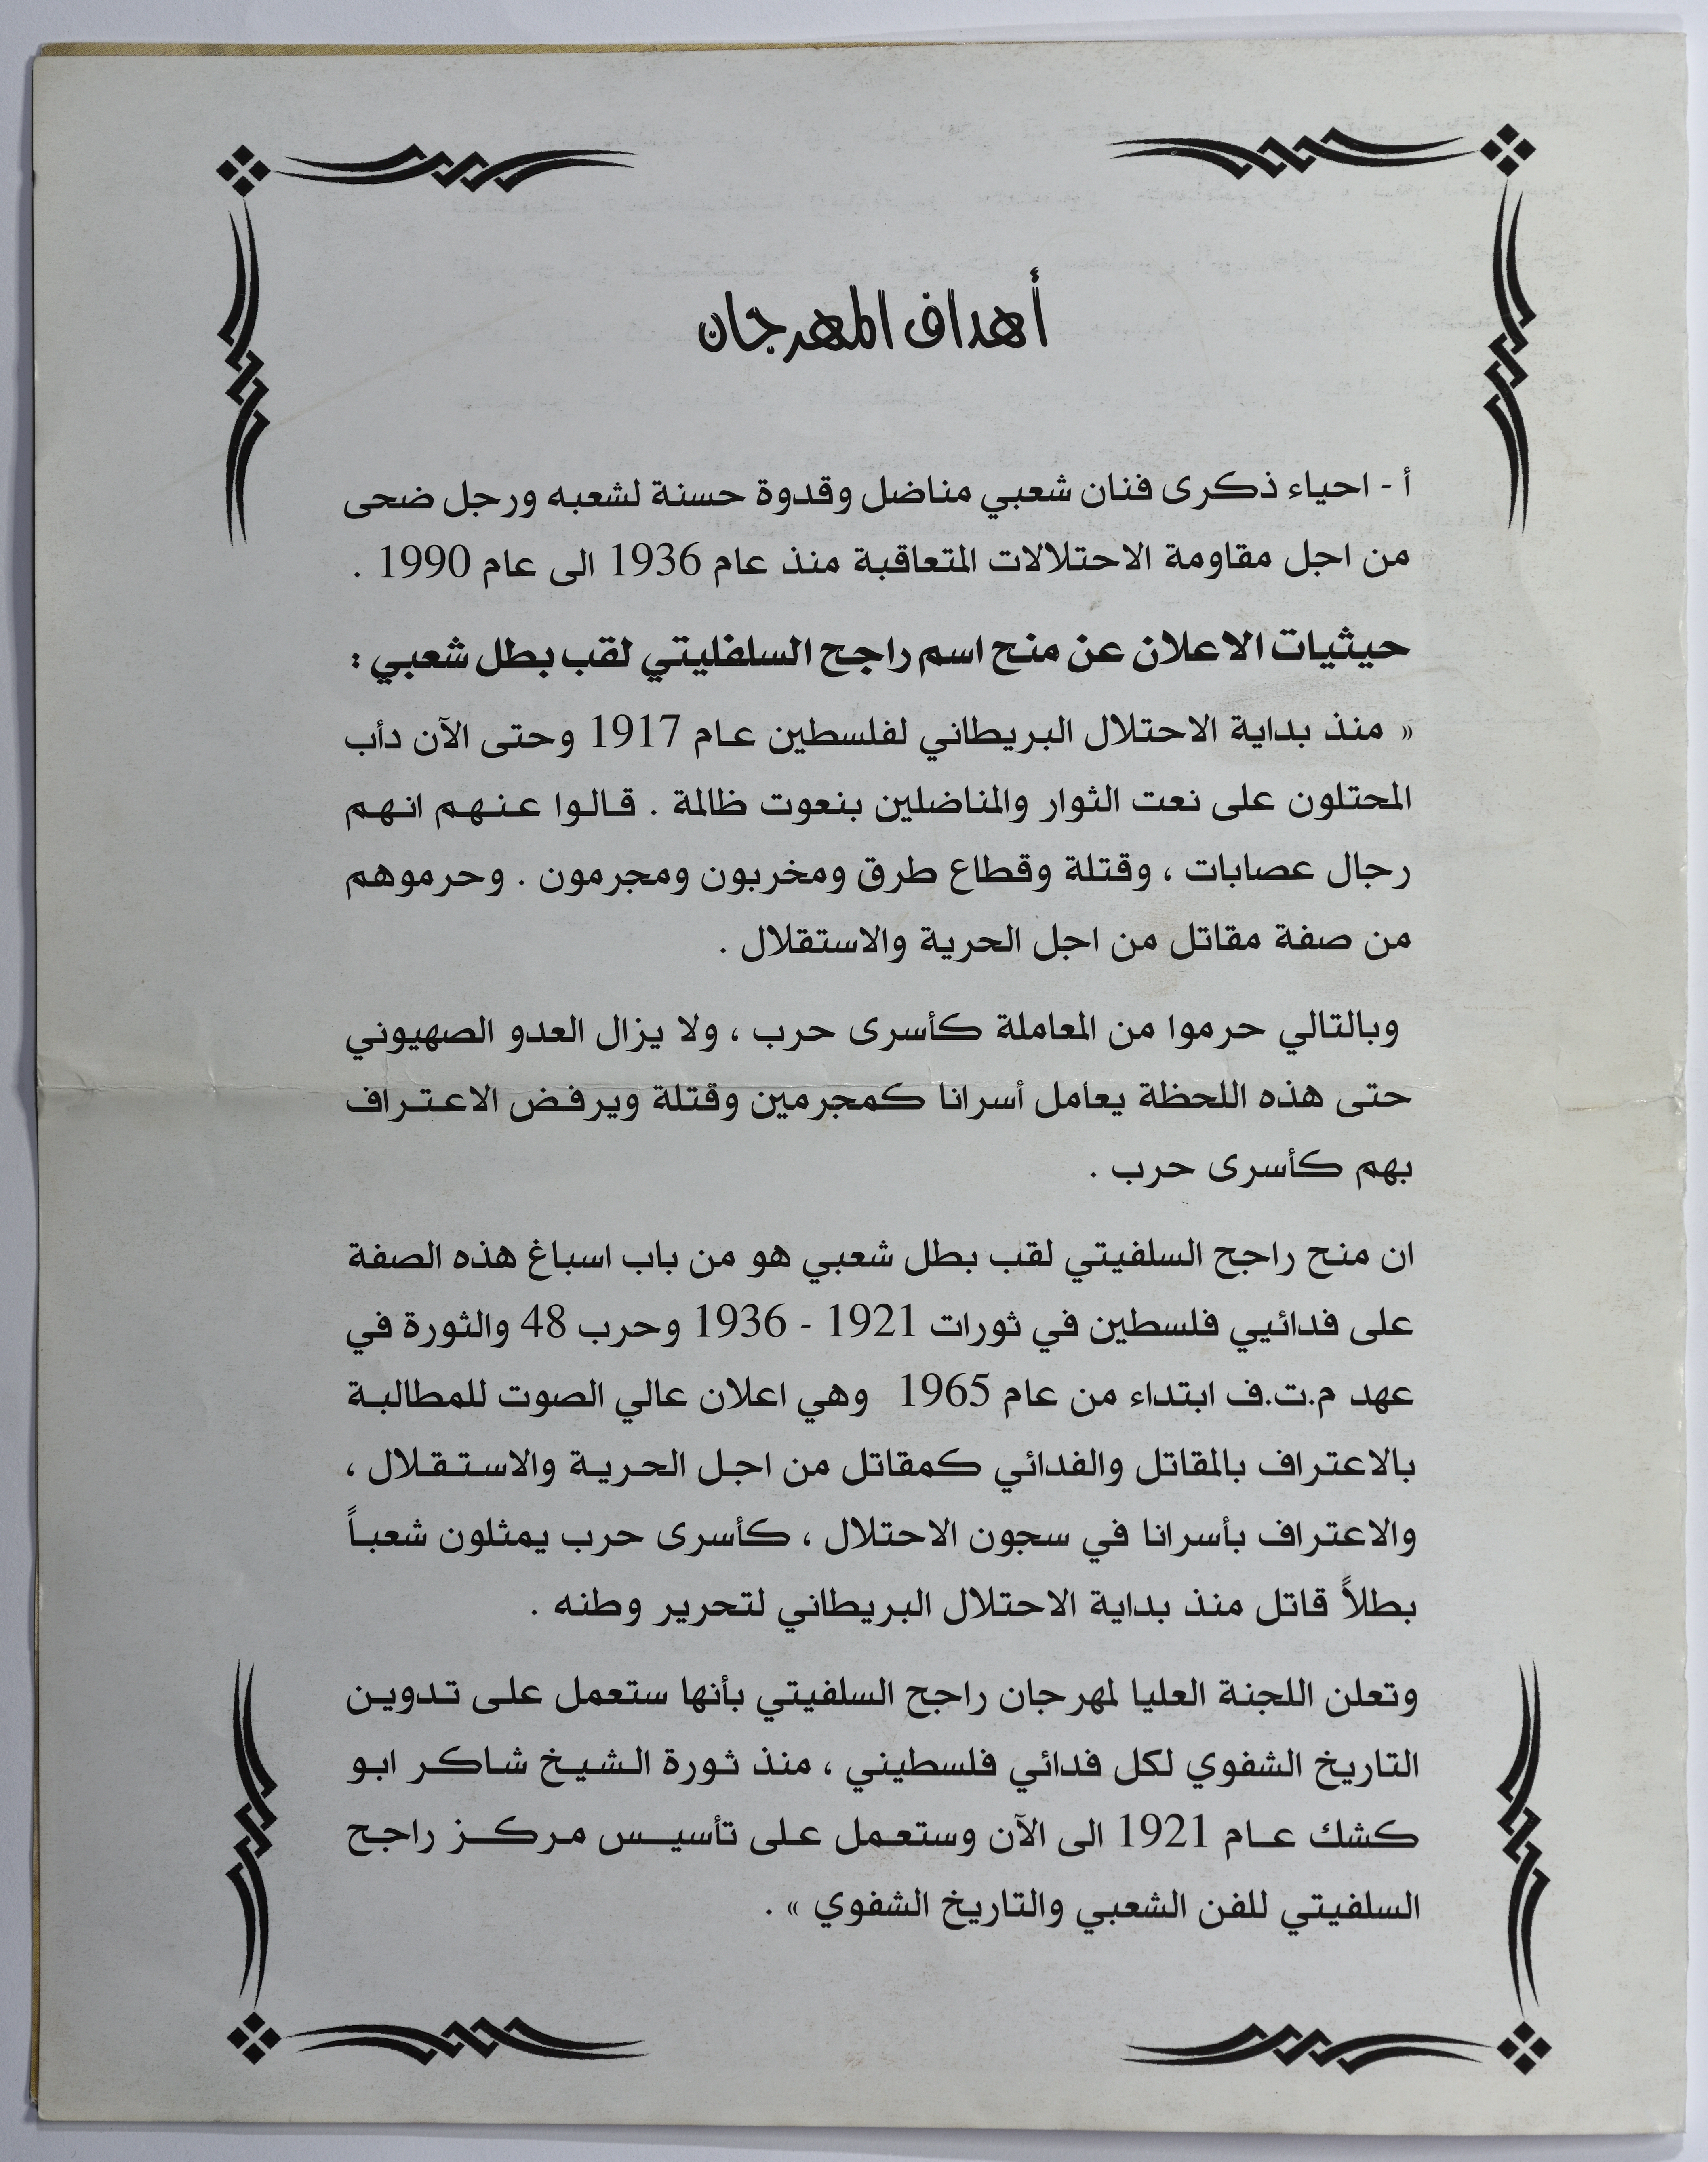 أهداف المهرجان
أ - احياء ذكرى فنان شعبي مناضل وقدوة حسنة لشعبه ورجل ضحى
من اجل مقاومة الاحتلالات المتعاقبة منذ عام 1936 الى عام 1990 .
حيثيات الاعلان عن منح اسم راجح السلفليتي لقب بطل شعبي :
« منذ بداية الاحتلال البريطاني لفلسطين عام 1917 وحتى الآن دأب
المحتلون على نعت الثوار والمناضلين بنعوت ظالمة . قالوا عنهم انهم
رجال عصابات ، وقتلة وقطاع طرق ومخربون ومجرمون . وحرموهم
من صفة مقاتل من اجل الحرية والاستقلال .
وبالتالي حرموا من المعاملة كأسرى حرب ، ولا يزال العدو الصهيوني
حتى هذه اللحظة يعامل أسرانا كمجرمين وقتلة ويرفض الاعتراف
بهم كأسرى حرب .
ان منح راجح السلفيتي لقب بطل شعبي هو من باب اسباغ هذه الصفة
على فدائيي فلسطين في ثورات 1921 - 1936 وحرب 48 والثورة في
عهد م.ت.ف ابتداء من عام 1965 وهي اعلان عالي الصوت للمطالبة
بالاعتراف بالمقاتل والفدائي كمقاتل من اجل الحرية والاستقلال ،
والاعتراف بأسرانا في سجون الاحتلال ، كأسرى حرب يمثلون شعباً
بطلاً قاتل منذ بداية الاحتلال البريطاني لتحرير وطنه .
وتعلن اللجنة العليا لمهرجان راجح السلفيتي بأنها ستعمل على تدوين
التاريخ الشفوي لكل فدائي فلسطيني ، منذ ثورة الشيخ شاكر ابو
كشك عام 1921 الى الآن وستعمل على تأسيس مركز راجح
السلفيتي للفن الشعبي والتاريخ الشفوي » .